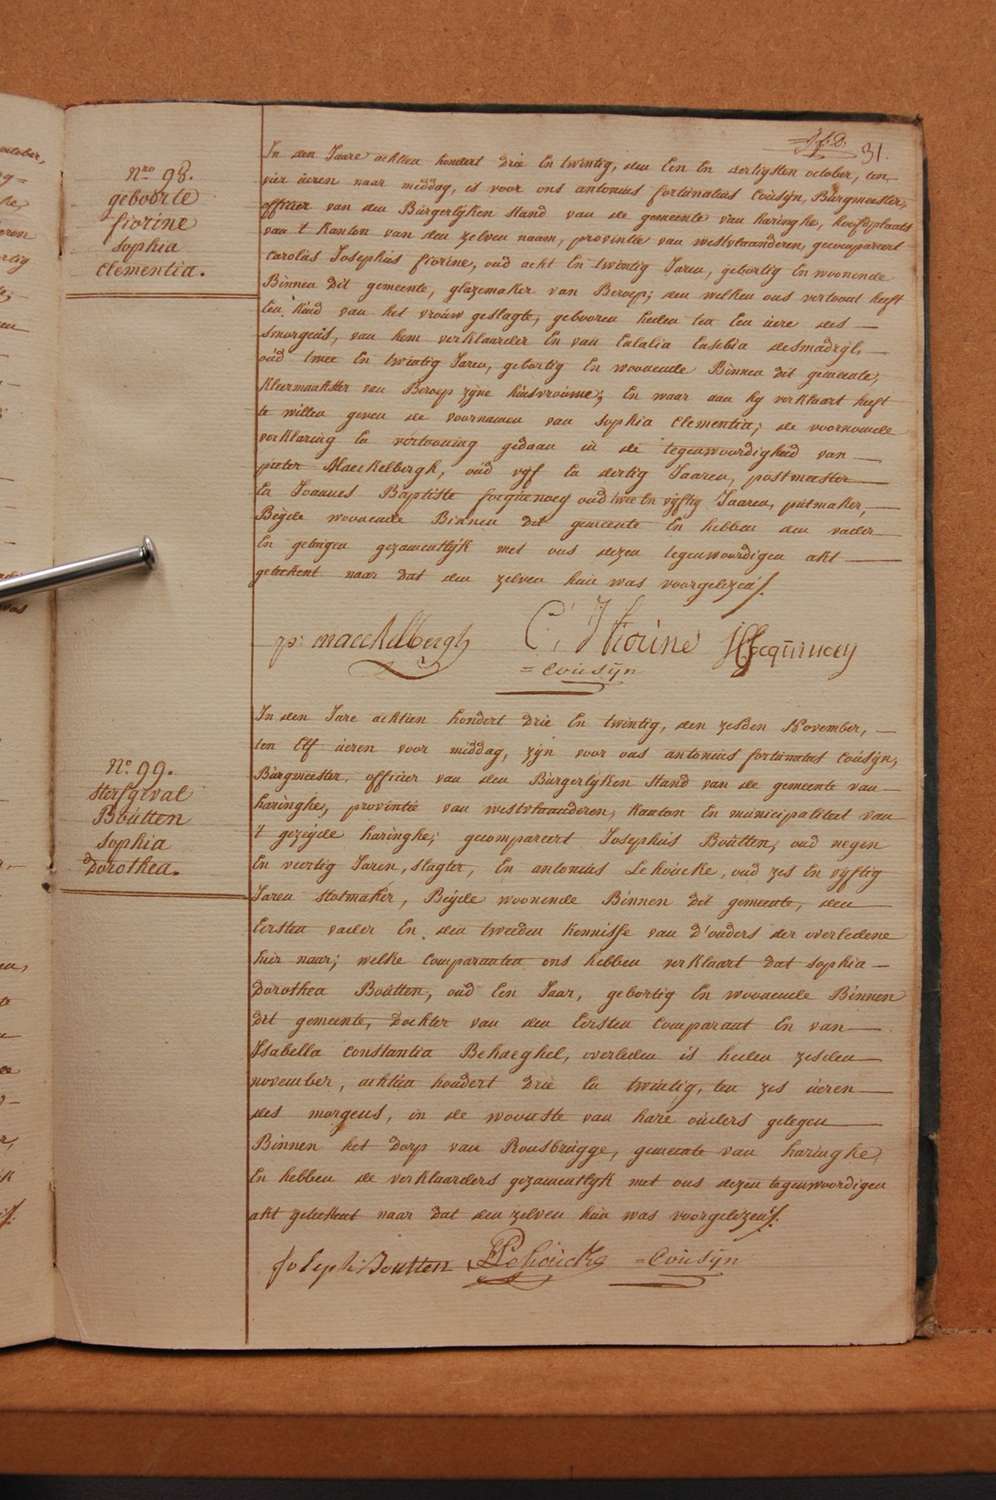 31.
nro 98.
geboorte
fiorine
sophia
clementia.
In den Jaare achtien hondert drie En twintig, den Een En dertigsten october, ten
vier ueren naar middag, is voor ons antonius fortunatus Cousÿn, Burgmeester,
officier van den Burgerlyken stand van de gemeente van haringhe, hoofdplaats
van 't Kanton van den zelven naam, provintie van westvlaanderen, gecompareert
Carolus Josephus fiorine, oud acht En twintig Jaren, gebortig En woonende
Binnen dit gemeente, glazemaker van Beroep; den welken ons vertoont heeft
Een Kind van het vrouw geslagte, gebooren heden ten Een uere des
smorgens, van hem verklaarder En van Eulalia Eusebia desmadryl,
oud twee En twintig Jaren, gebortig En woonende Binnen dit gemeente,
kleermaakster van Beroep zyne huisvrouwe; En waar aan hy verklaart heeft
te willen geven de voornamen van sophia Clementia; de voornoemde
verklaring En vertooning gedaan in de tegenwoordigheid van
pieter Maeckelbergh, oud vyf En dertig Jaaren, postmeester
En Joannes Baptiste focquenoey oud twee En vyftig Jaaren, putmaker,
Beyde woonende Binnen dit gemeente En hebben den vader
En getuigen gezamentlyk met ons dezen tegenwoordigen akt
geteekent naar dat den zelven hun was voorgelezen/.
p: maeckelbergh C. J Fiorine
= Cousÿn
No 99.
sterfgeval
Boutten
sophia
Dorothea.
In den Jare achtien hondert drie En twintig, den zesden November,
ten Elf ueren voor middag, zyn voor ons antonius fortunatus Cousÿn,
Burgmeester, officier van den Burgerlyken stand van de gemeente van
haringhe, provintie van westvlaanderen, Kanton En municipaliteit van
't gezeyde haringhe; gecompareert Josephus Boutten, oud negen
En veertig Jaren, slagter, En antonius Lehoucke, oud zes En vyftig
Jaren stoelmaker, Beyde woonende Binnen dit gemeente, den
Eersten vader En den tweeden kennisse van d'ouders der overledene
hier naar; welke comparanten ons hebben verklaart dat sophia
Dorothea Boutten, oud Een Jaar, gebortig En woonende Binnen
dit gemeente, Dochter van den Eersten Comparant En van
Isabella Constantia Behaeghel, overleden is heden zesden
november, achtien hondert drie En twintig, ten zes ueren
des morgens, in de wooнste van hare ouders gelegen
Binnen het dorp van Rousbrugge, gemeente van haringhe,
En hebben de verklaarders gezamentlyk met ons dezen tegenwoordigen
akt geteekent naar dat den zelven hun was voorgelezen/.
Joseph: Boutten Lehoucke = Cousÿn